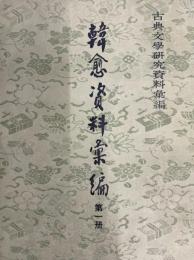 古典文學研究資料彙編
韓愈資料彙編
第一册